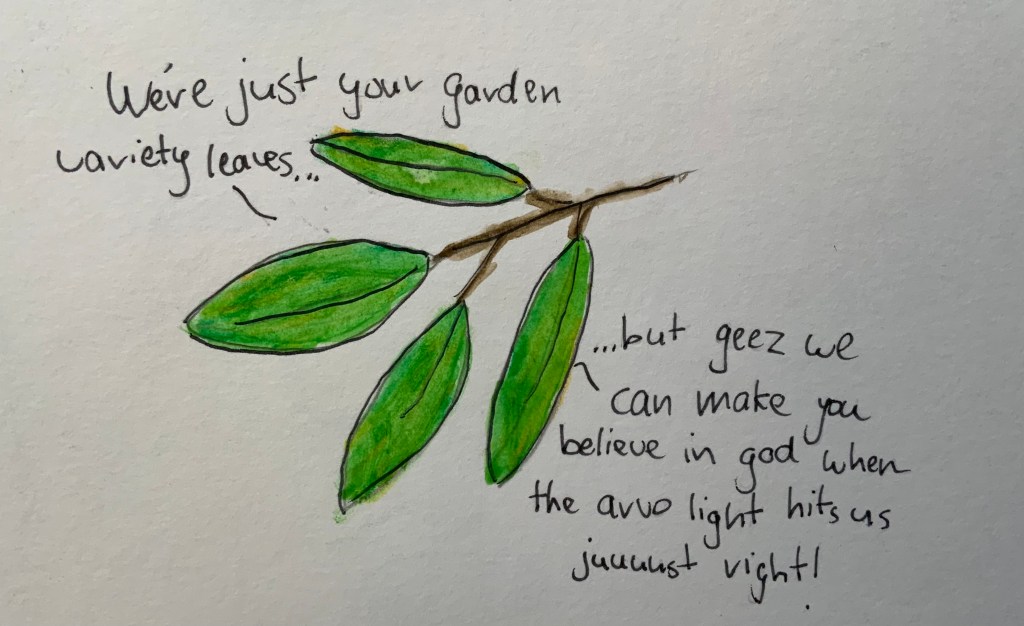 We're just your garden
variety leaves...
...but geez we
can make you
believe in god when
the arvo light hits us
juuuust right!